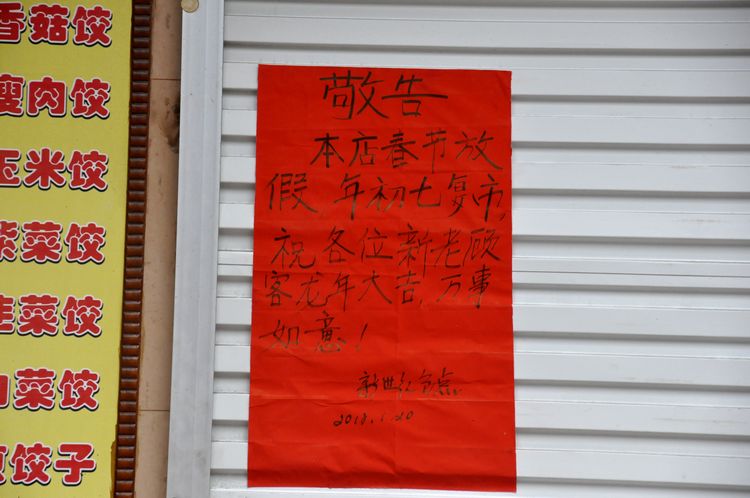 香菇饺
瘦肉饺
玉米饺
紫菜饺
菜饺
菜饺
饺子
敬告
本店春节放
假,年初七复市,
祝各位新老顾
客龙年大吉,万事
如意!
新世纪点